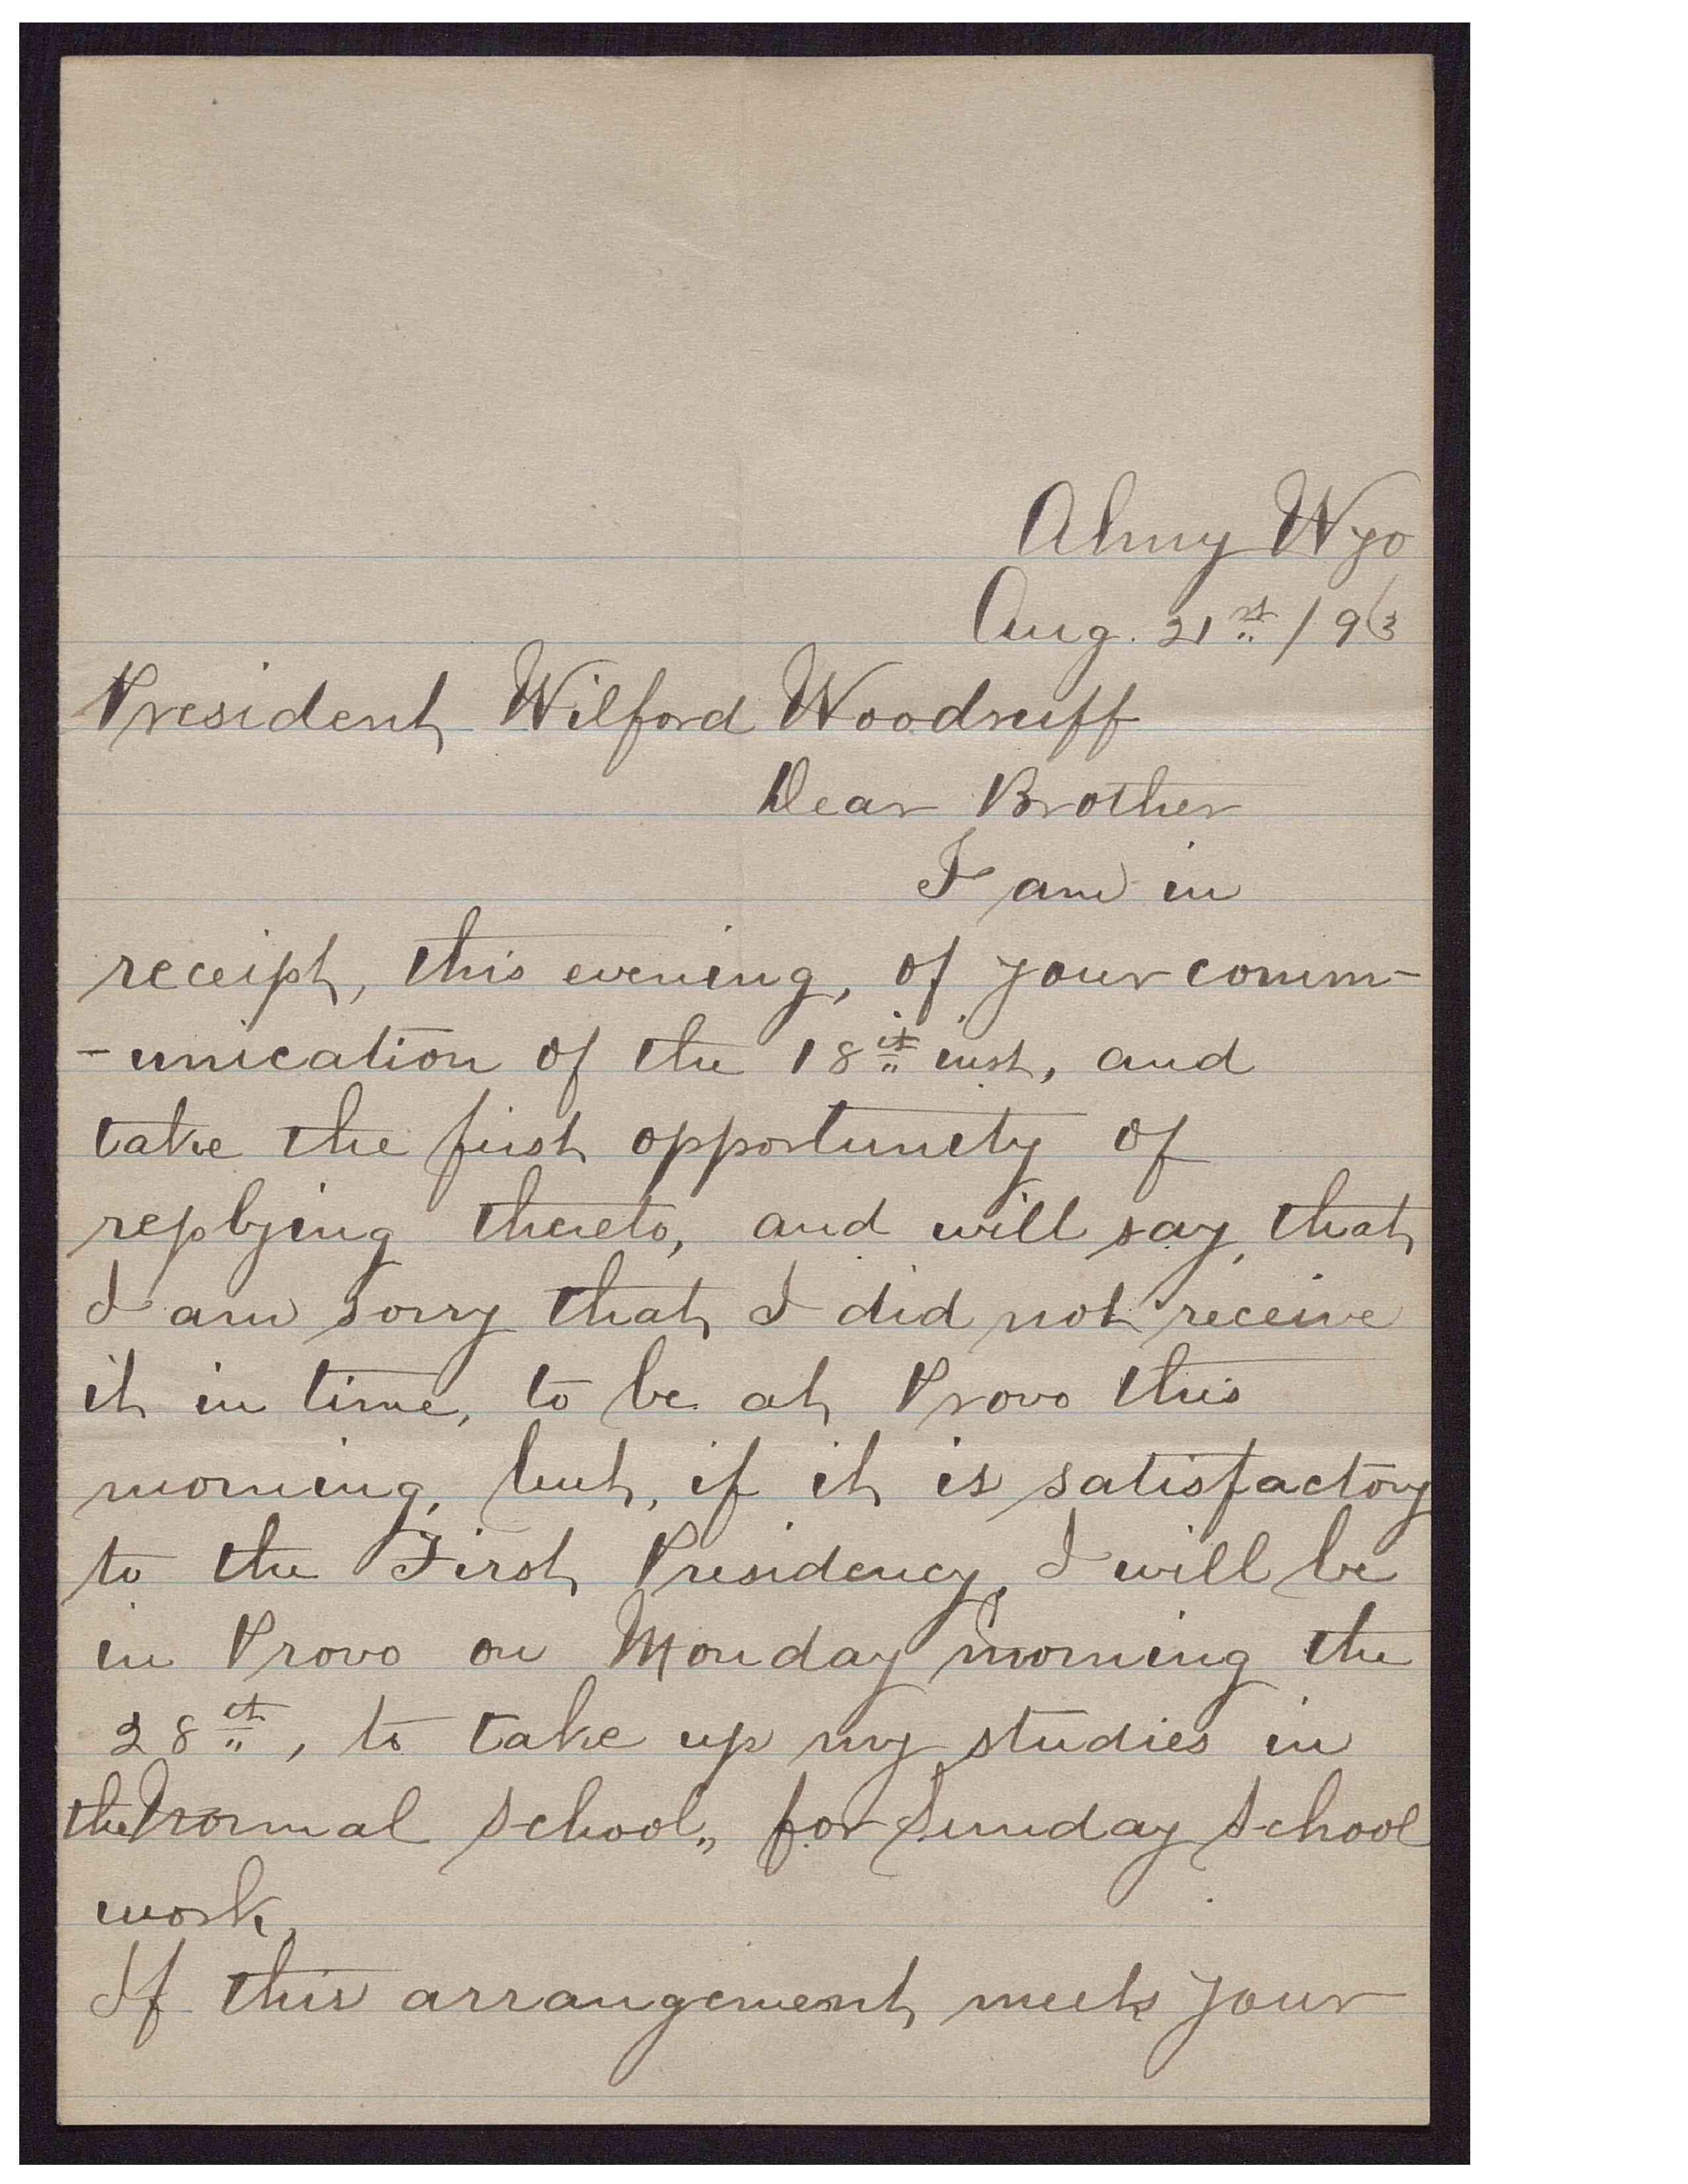 Almy Wyo
Aug. 21st /93
President Wilford Woodruff
Dear Brother
I am in
receipt, this evening, of your comm-
-unication of the 18th inst, and
take the first opportunity of
replying thereto, and will say, that
I am sorry that I did not receive
it in time, to be at Provo this
morning, but, if it is satisfactory
to the First Presidency, I will be
in Provo on Monday morning the
28th, to take up my studies in
the Normal School,, for Sunday School
work,
If this arrangement meets your